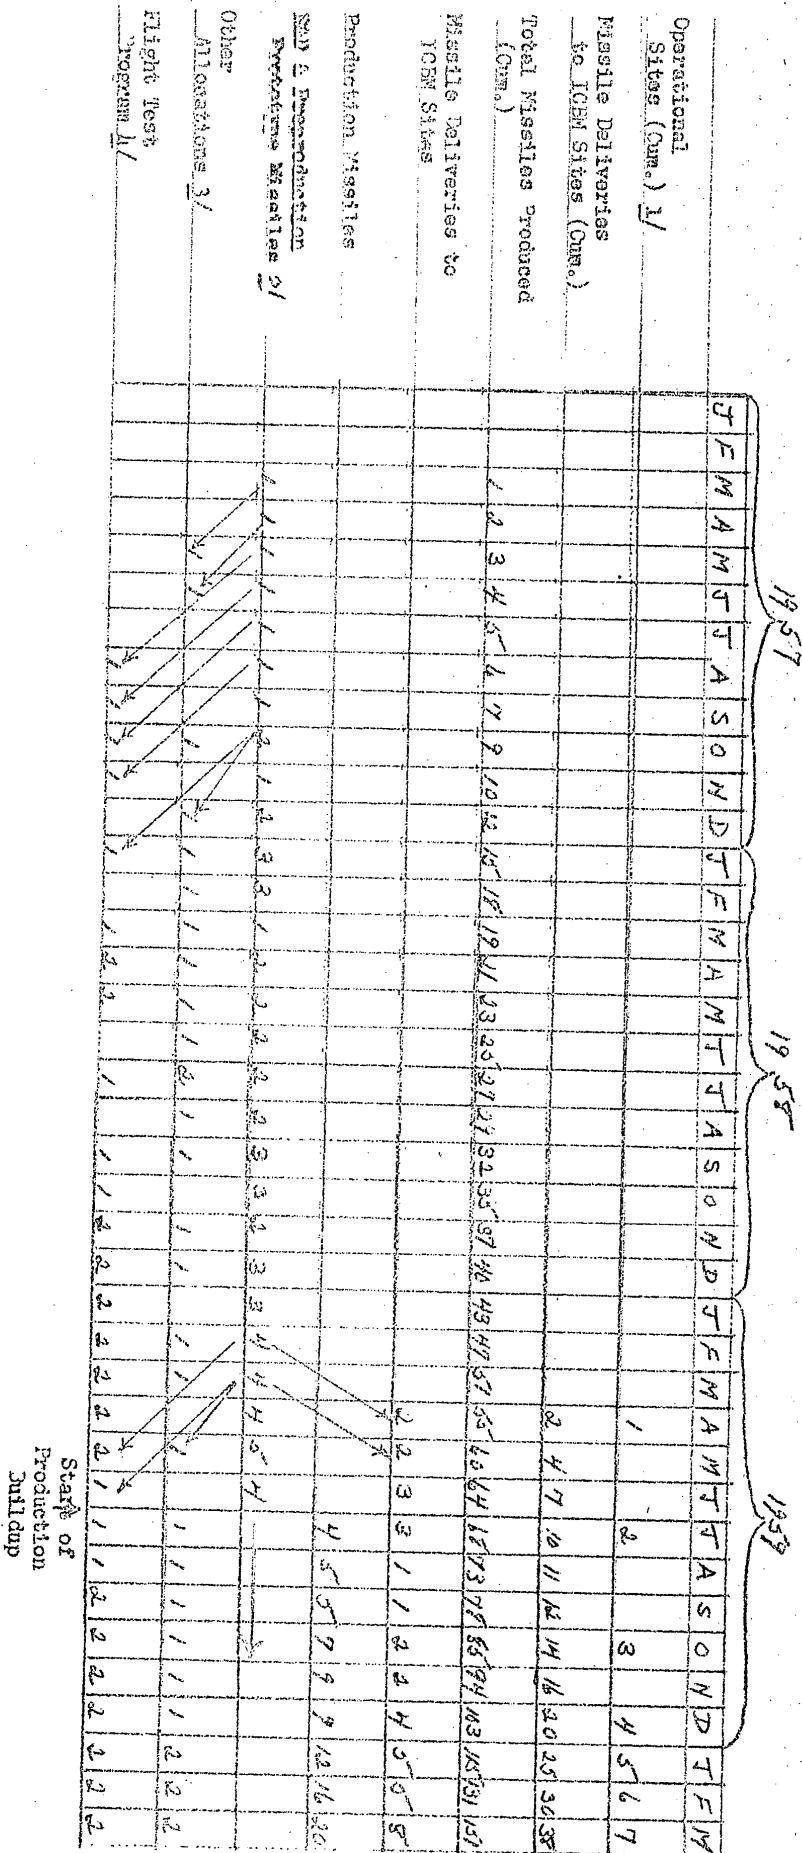 1957 1958 1959
J F M A M J J A S O N D J F M A M J J A S O N D J F M A M J J A S O N D J F M
Operational
Sites (Cum.) 1/ 1 2 3 4 5 6 7
Missile Deliveries
to ICBM Sites (Cum.) 2 4 7 10 11 12 14 16 20 25 30 38
Total Missiles Produced
(Cum.) 1 2 3 4 5 6 7 9 10 12 15 18 19 21 23 25 27 29 32 35 37 40 43 47 51 55 60 64 68 73 85 94 103 115 131 151
Missile Deliveries to
ICBM Sites 2 2 3 3 1 1 2 2 4 5 5 8
Production Missiles 4 5 5 7 9 9 12 16 20
R&D & Preproduction
Prototype Missiles 2/ 1 1 1 1 1 1 1 2 1 2 3 3 1 2 2 2 2 2 3 3 2 3 3 4 4 4 5 4
Other
Allocations 3/ 1 1 1 1 1 1 1 1 1 1 2 1 1 1 1 1 1 1 1 1 1 1 1 1 2 2 2
Flight Test
Program 4/ 1 1 1 1 1 1 2 2 1 1 1 2 2 2 2 2 2 2 1 1 1 2 2 2 2 2 2 2
Start of
Production
Buildup